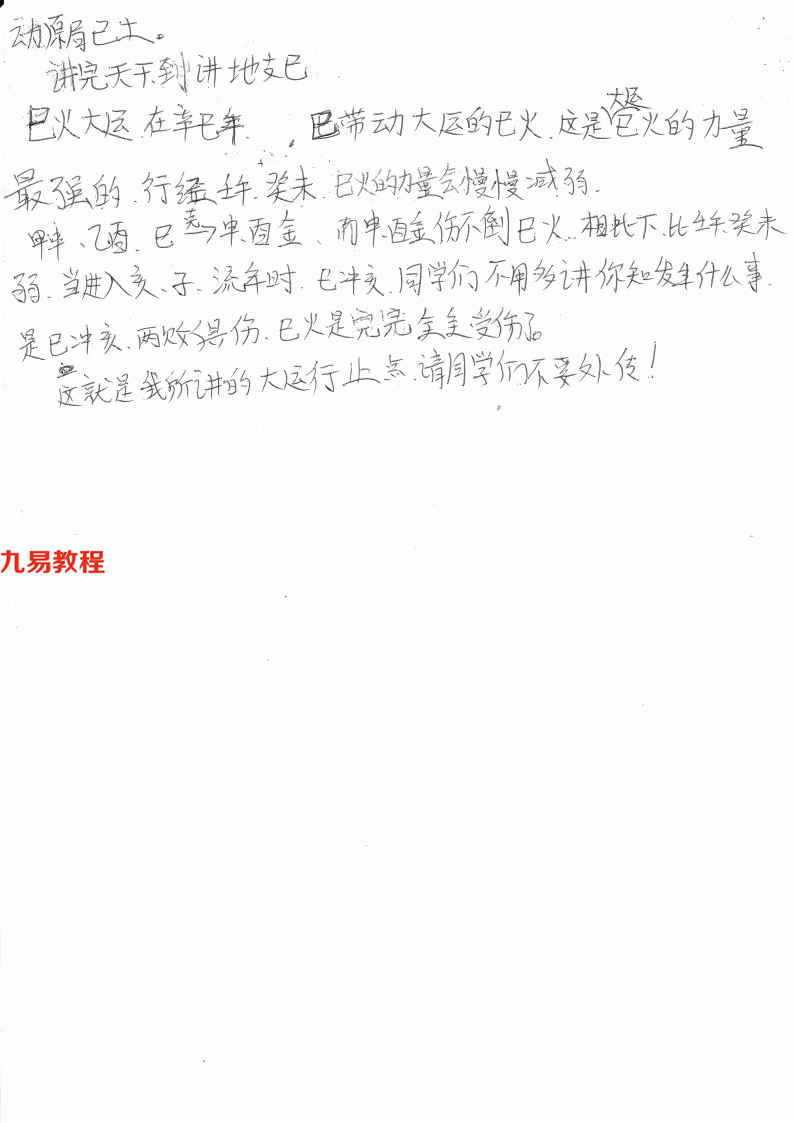 动原局己土。
讲完天干到讲地支巳
巳火大运.在辛巳年.巳带动大运的巳火.这是大运巳火的力量
最强的.行经壬午.癸未.巳火的力量会慢慢减弱.
甲申、乙酉.巳克→申.酉金、而申.酉金伤不倒巳火..相比下.比壬午.癸未
弱.当进入亥、子、流年时.巳冲亥.同学们不用多讲你知发生什么事.
是巳冲亥.两败俱伤.巳火是完完全全受伤了。
这就是我所讲的大运行止点.请同学们不要外传!
九易教程